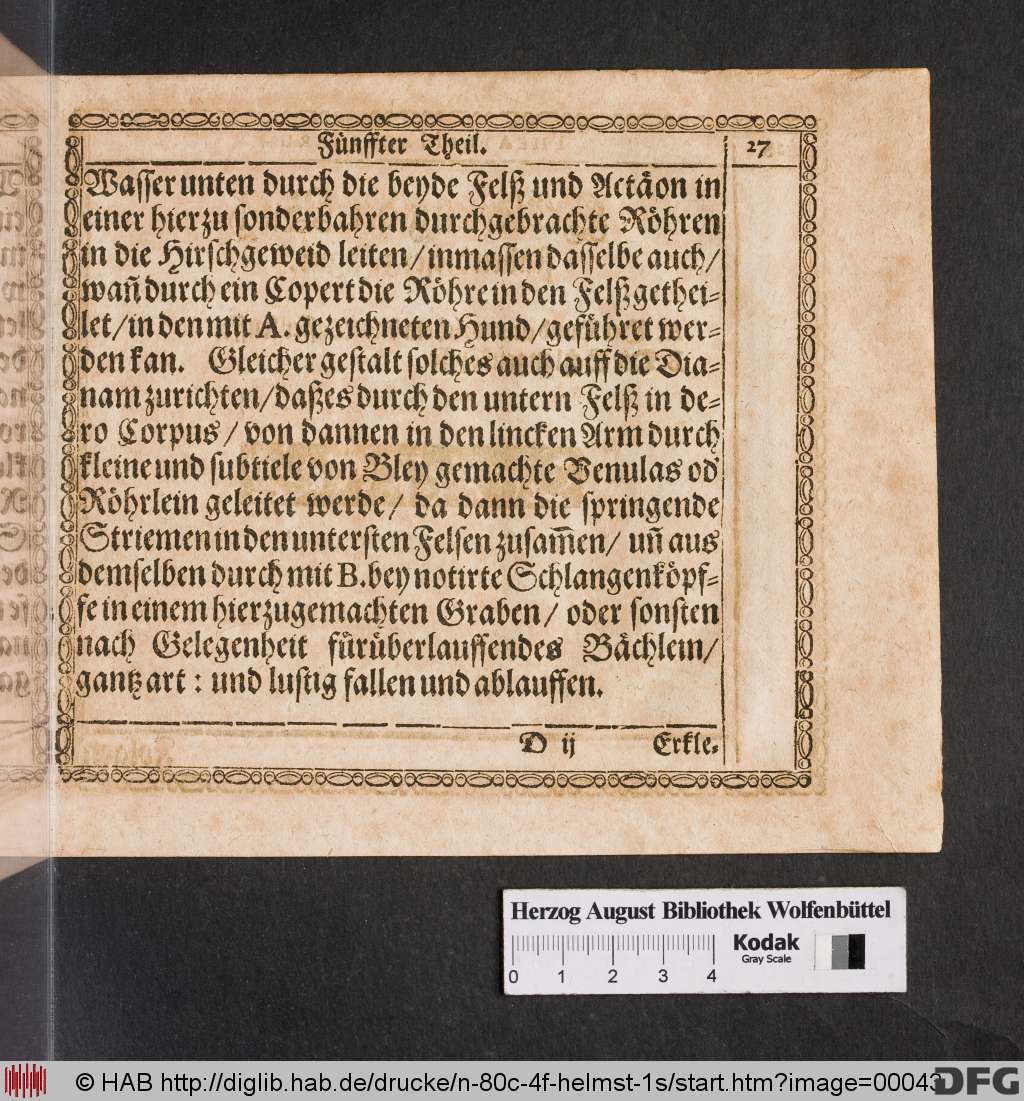 Fünffter Theil. 27
Wasser unten durch die beyde Felß und Actäon in
einer hierzu sonderbahren durchgebrachte Röhren
in die Hirschgeweid leiten/ inmassen dasselbe auch/
wañ durch ein Copert die Röhre in den Felß gethei-
let/ in den mit A. gezeichneten Hund/ geführet wer-
den kan. Gleicher gestalt solches auch auff die Dia-
nam zurichten/ daß es durch den untern Felß in de-
ro Corpus/ von dannen in den lincken Arm durch
kleine und subtiele von Bley gemachte Venulas od
Röhrlein geleitet werde/ da dann die springende
Striemen in den untersten Felsen zusam̃en/ uñ aus
demselben durch mit B. bey notirte Schlangenköpf-
fe in einem hierzu gemachten Graben/ oder sonsten
nach Gelegenheit fürüberlauffendes Bächlein/
gantz art: und lustig fallen und ablauffen.
D ij Erkle-
Herzog August Bibliothek Wolfenbüttel
Kodak
Gray Scale
0 1 2 3 4
© HAB http://diglib.hab.de/drucke/n-80c-4f-helmst-1s/start.htm?image=00043
DFG